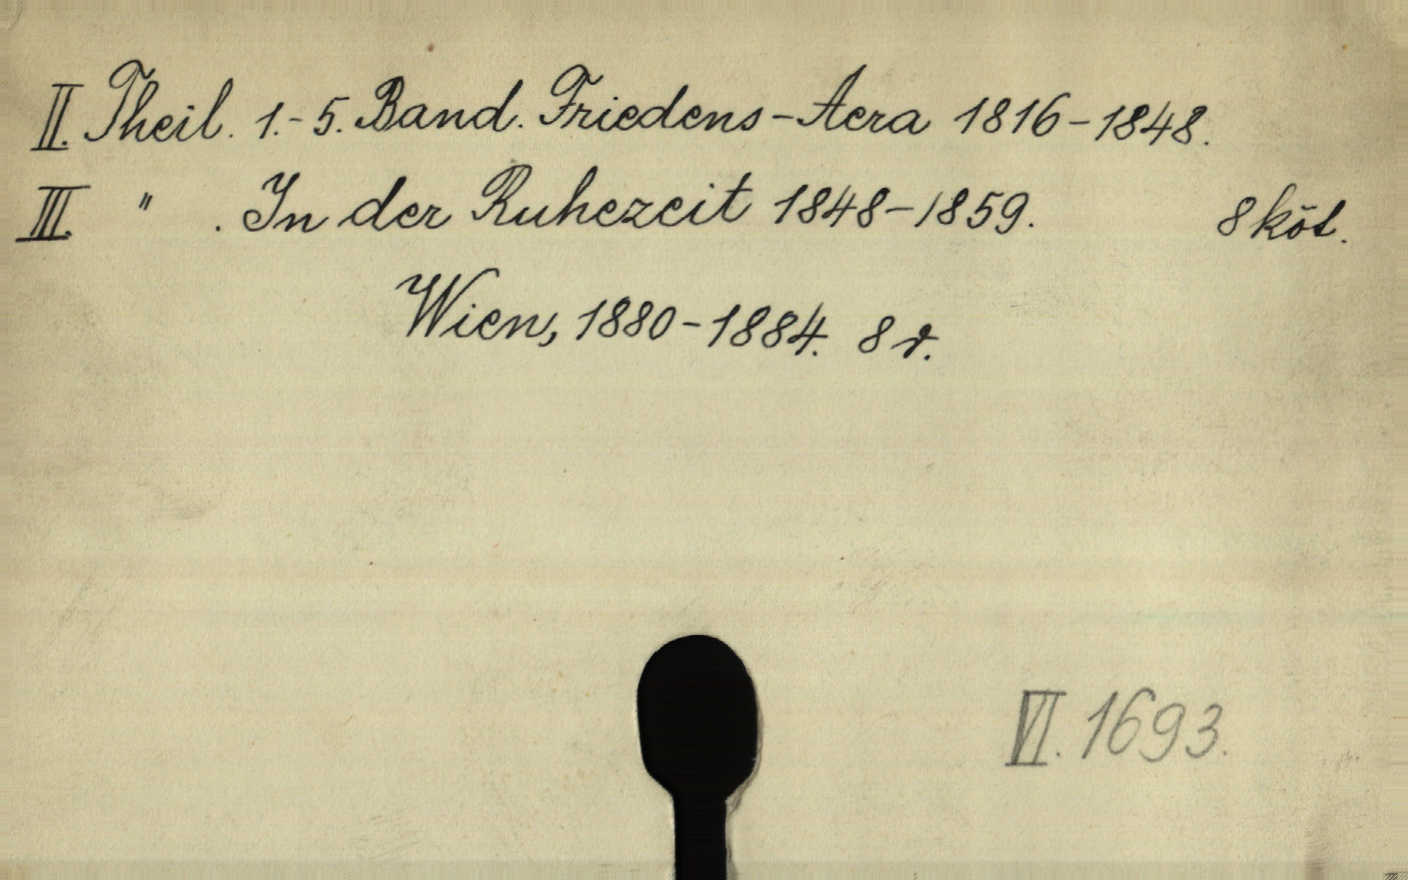 II. Theil. 1.-5. Band. Friedens-Aera 1816-1848.
III. " . In der Ruhezeit 1848-1859. 8 köt.
Wien, 1880-1884. 8 r.
VI. 1693.